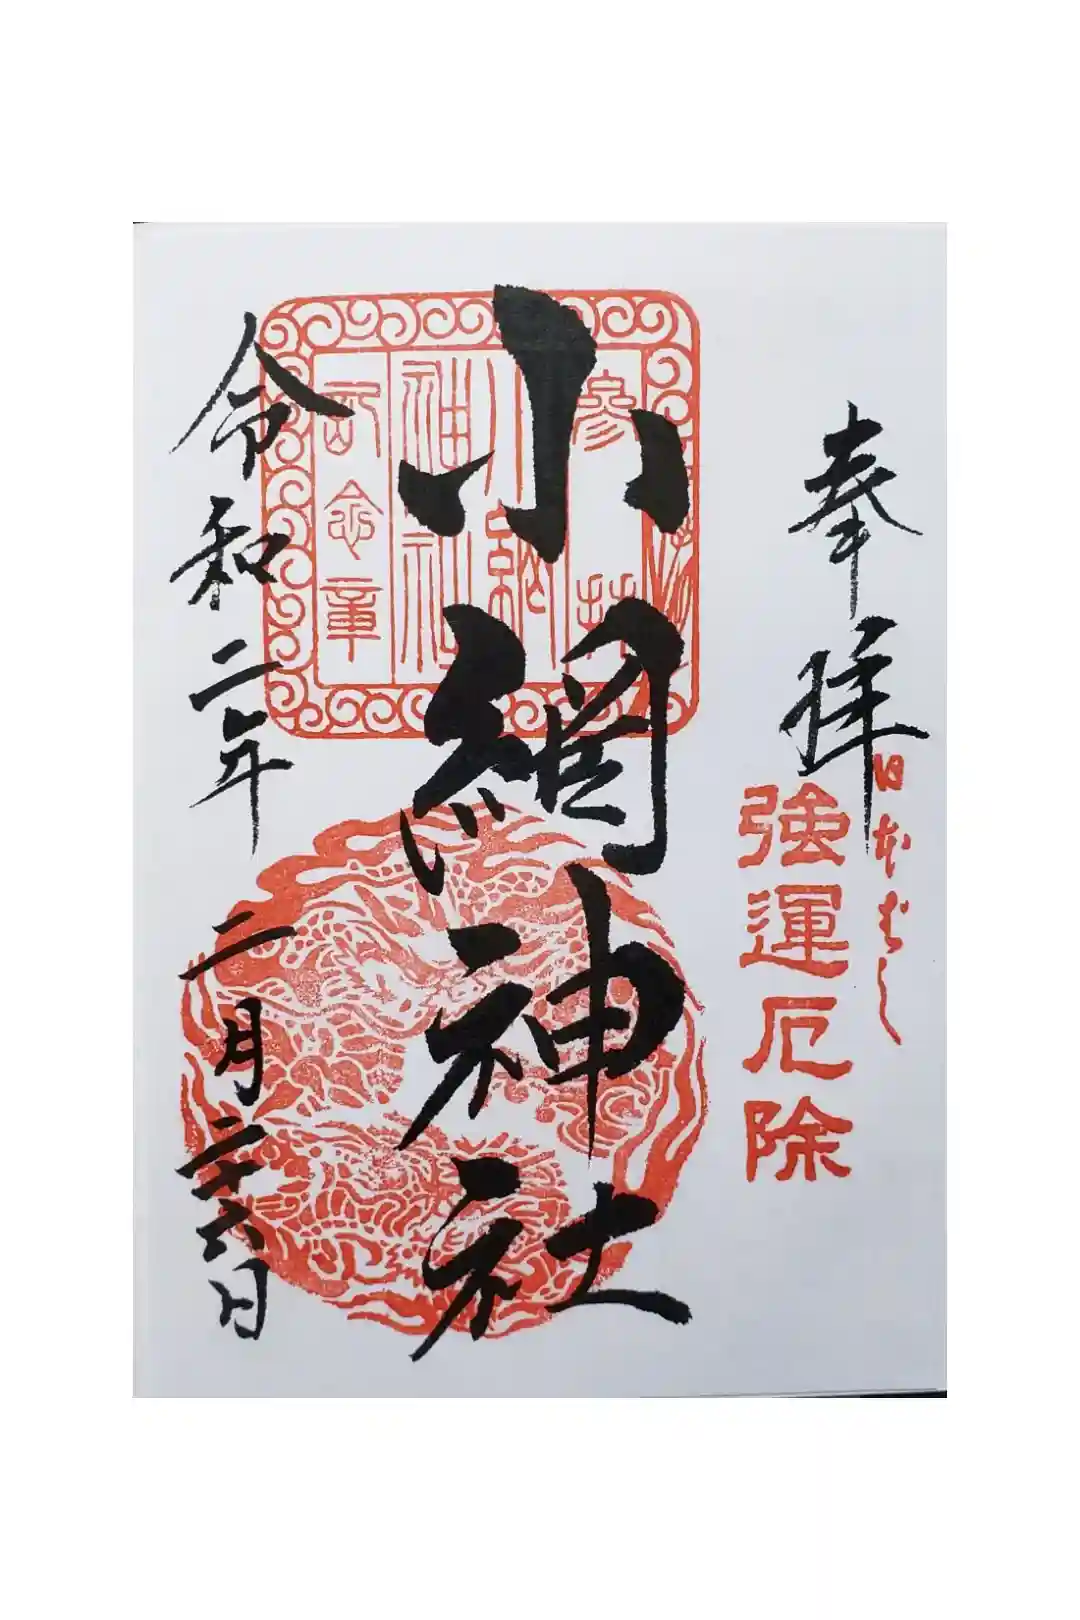 奉拝
日本ばし
強運厄除
参拝
小網神社
記念章
小網神社
令和二年 二月二十六日